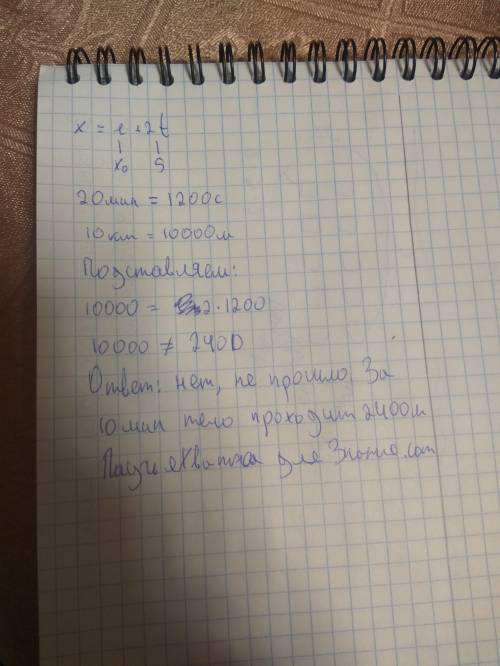 x = e + 2t
x₀ S
20 мин = 1200с
10 км = 10000м
Подставляем:
10000 = 2·1200
10000 ≠ 2400
Ответ: нет, не прошло. За
10 мин тело проходит 2400м
для Знание.com